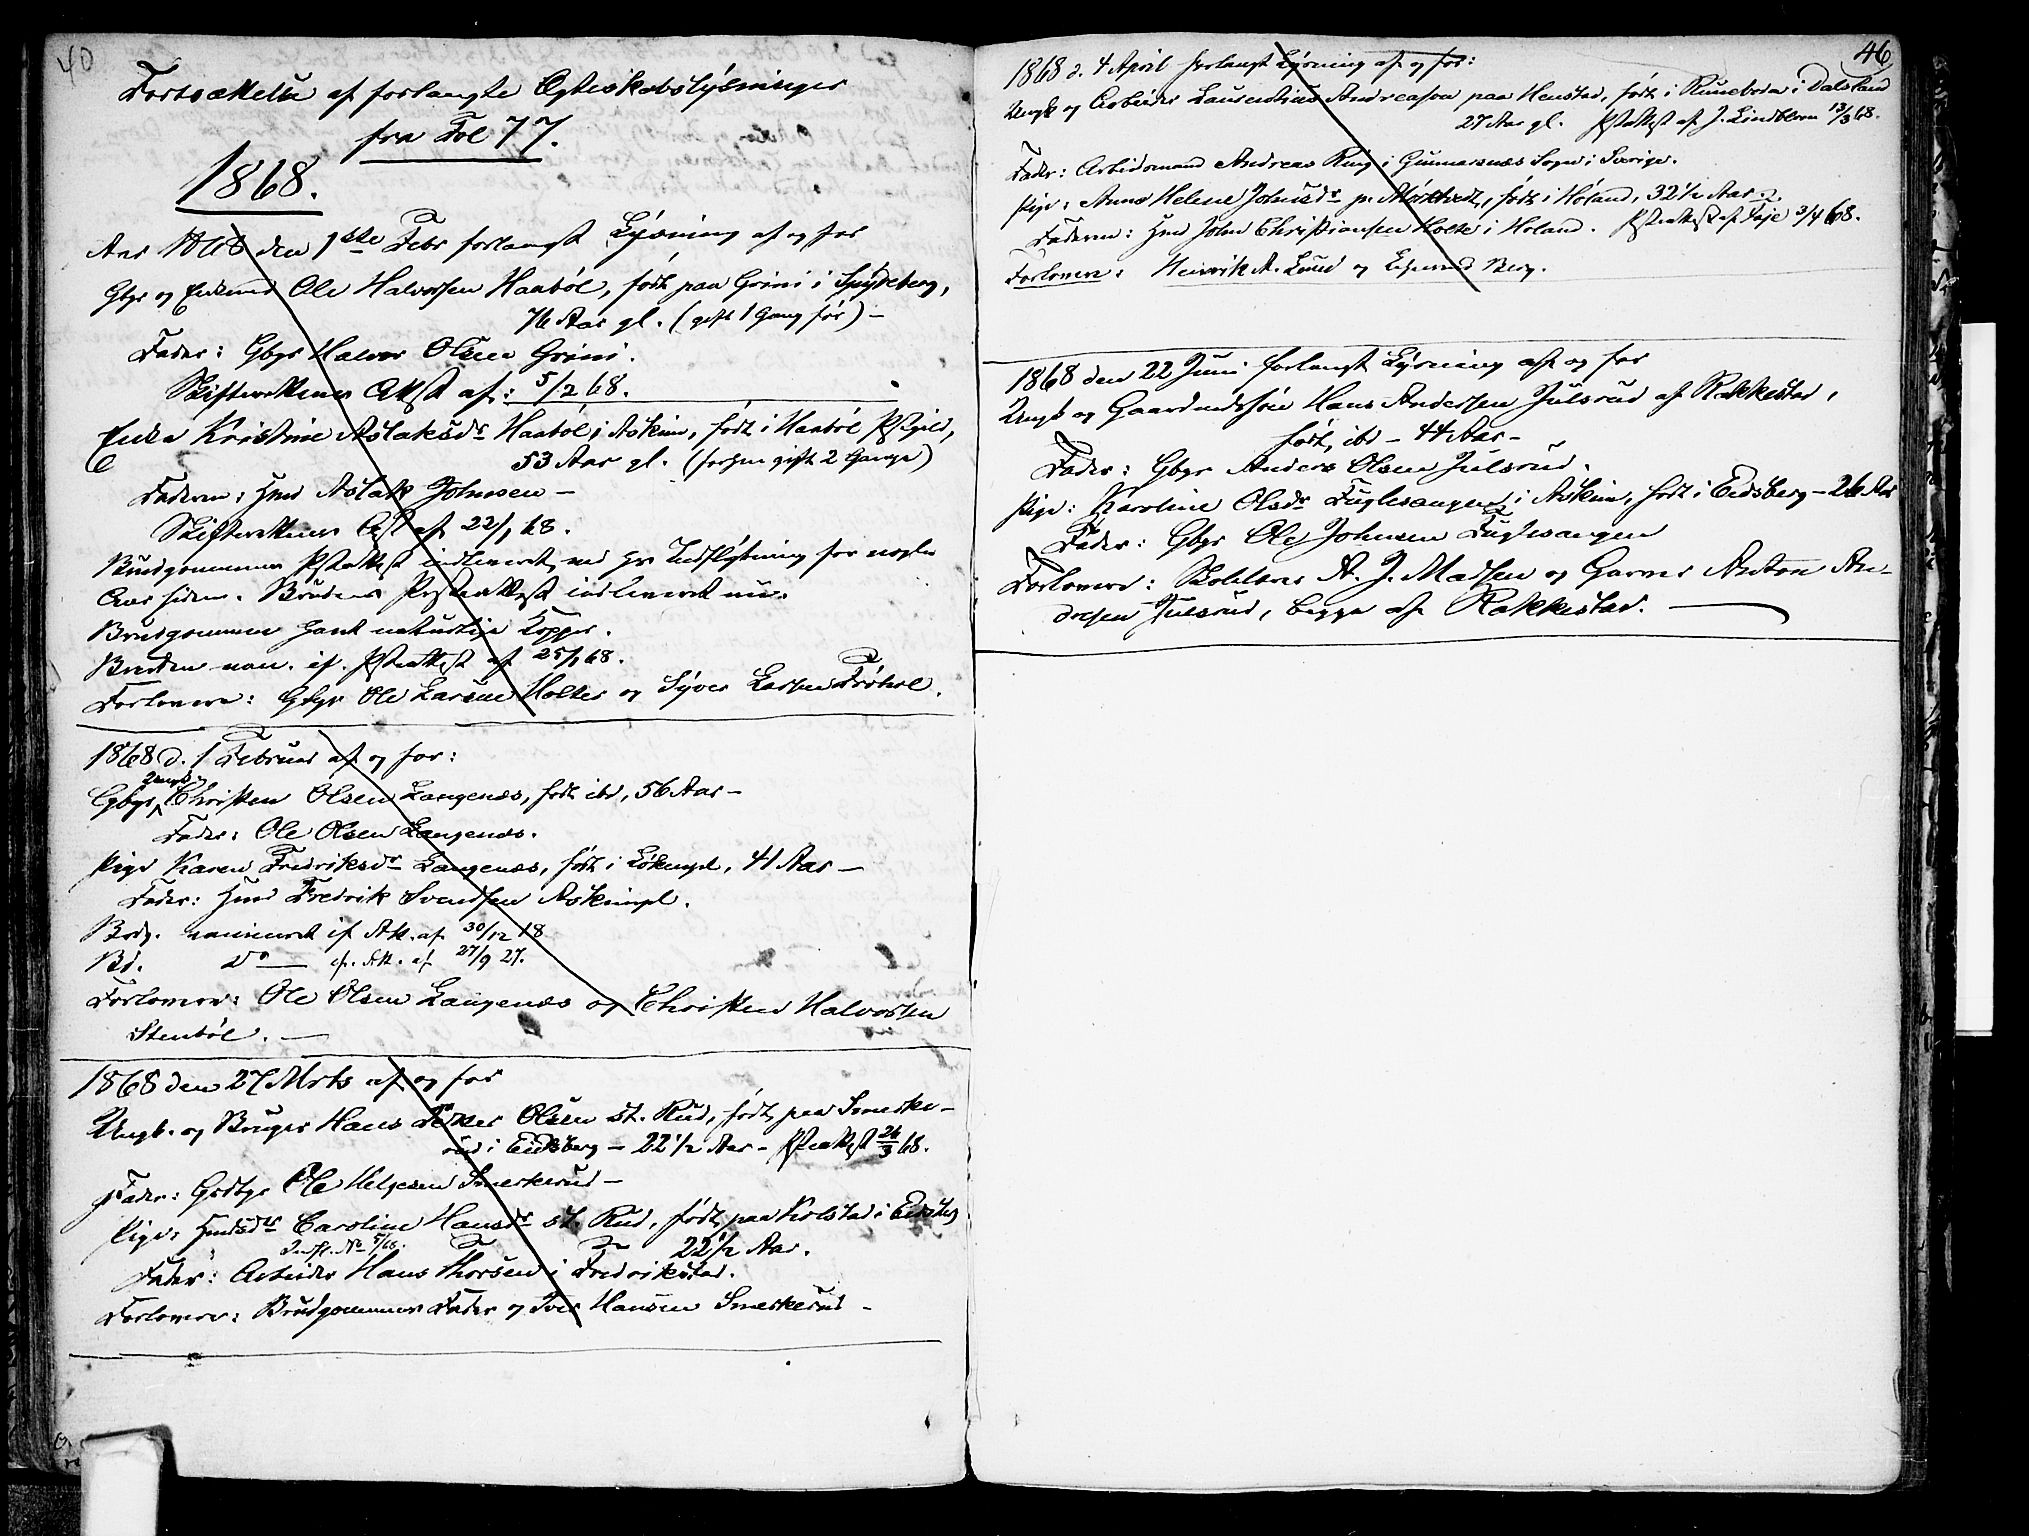 40
Fortsættelse af forlangte Ægteskabslysninger
fra Fol 77.
1868.
Aar 1868 den 1ste Febr forlangt Lysning af og for
Gbgr og Enkemd Ole Halvorsen Haabøl, født paa Grini i Spydeberg,
76 Aar gl. (gift 1 Gang før) –
Fader: Gbgr Halvor Olsen Grini.
Skifterettens Attst af: 5/2 68.
Enke Kristine Aslaksdr Haabøl i Askim, født i Haabøl Pstgjeld,
53 Aar gl. (forhen gift 2 Gange)
Faderen: Hmd Aslak Johnsen –
Skifterettens Att af 22/1 68.
Brudgommens Pstattest indleveret ved hs Indflytning for nogle
Aar siden. Brudens Prsteattest indleveret nu.
Brudgommen havt naturlige Kopper.
Bruden vacc. if. Psteattest af 25/1 68.
Forlovere: Gbgr Ole Larsen Holter og Syver Larsen Frøhol.
1868 d. 1 Februar af og for:
Ungk
Gbgr Christen Olsen Langenæs, født ibd, 56 Aar –
Fader: Ole Olsen Langenæs.
Pige Karen Fredriksdr Langenæs, født i Løkenpl, 41 Aar –
Fader: Hmd Fredrik Svendsen Askimpl.
Brdg. vaccineret if Att. af 30/12 18
Bd. do — if. Att. af 27/9 27.
Forlovere: Ole Olsen Langenæs og Christen Halvorsen
Stenbøl. —
1868 den 27 Mrts af og for
Ungk. og Bruger Hans Peter Olsen st. Rud, født paa Smerke-
rud i Eidsberg – 22 1/2 Aar – Psteattest 26/3 68.
Fader: Grdbgr Ole Helgesen Smerkerud –
Pige: Hmdsdr Caroline Hansdr st. Rud, født paa Kolstad i Eidsbg
Indfl. No 5/68. 22 1/2 Aar.
Fader: Arbeider Hans Thorsen i Fredrikstad.
Forlovere: Brudgommens Fader og Iver Hansen Smerkerud –
46
1868 d. 4 April forlangt Lysning af og for:
Ungk og Arbeider Laurentius Andreason paa Henstad, født i Runeboda i Dalsland
27 Aar gl. Pstattest af J. Lindblom 13/3 68.
Fader: Arbeidsmand Andreas Ring i Gunnarsnæs Sogn i Sverige.
Pige: Anne Helene Johnsdr p. Mørkhedt, født i Høland, 32 1/2 Aar
Faderen: Hmd John Christiansen Holte i Høland. Psteattest af 3/4 68.
Forlovere: Heinrik A. Lund og Berg.
1868 den 22 Juni forlangt Lysning af og for
Ungk og Gaardmdssøn Hans Andersen Julsrud af Rakkestad,
født, ibd – 44 Aar –
Fader: Gbgr Anders Olsen Julsrud.
Pige: Karoline Olsdr Fuglesangen i Askim, født i Eidsberg – 26 Aar
Fader: Gbgr Ole Johnsen Fuglesangen
Forlovere: Skolelærer A. J. Madsen og Garver Anton An-
dresen Julsrud, begge af Rakkestad. —